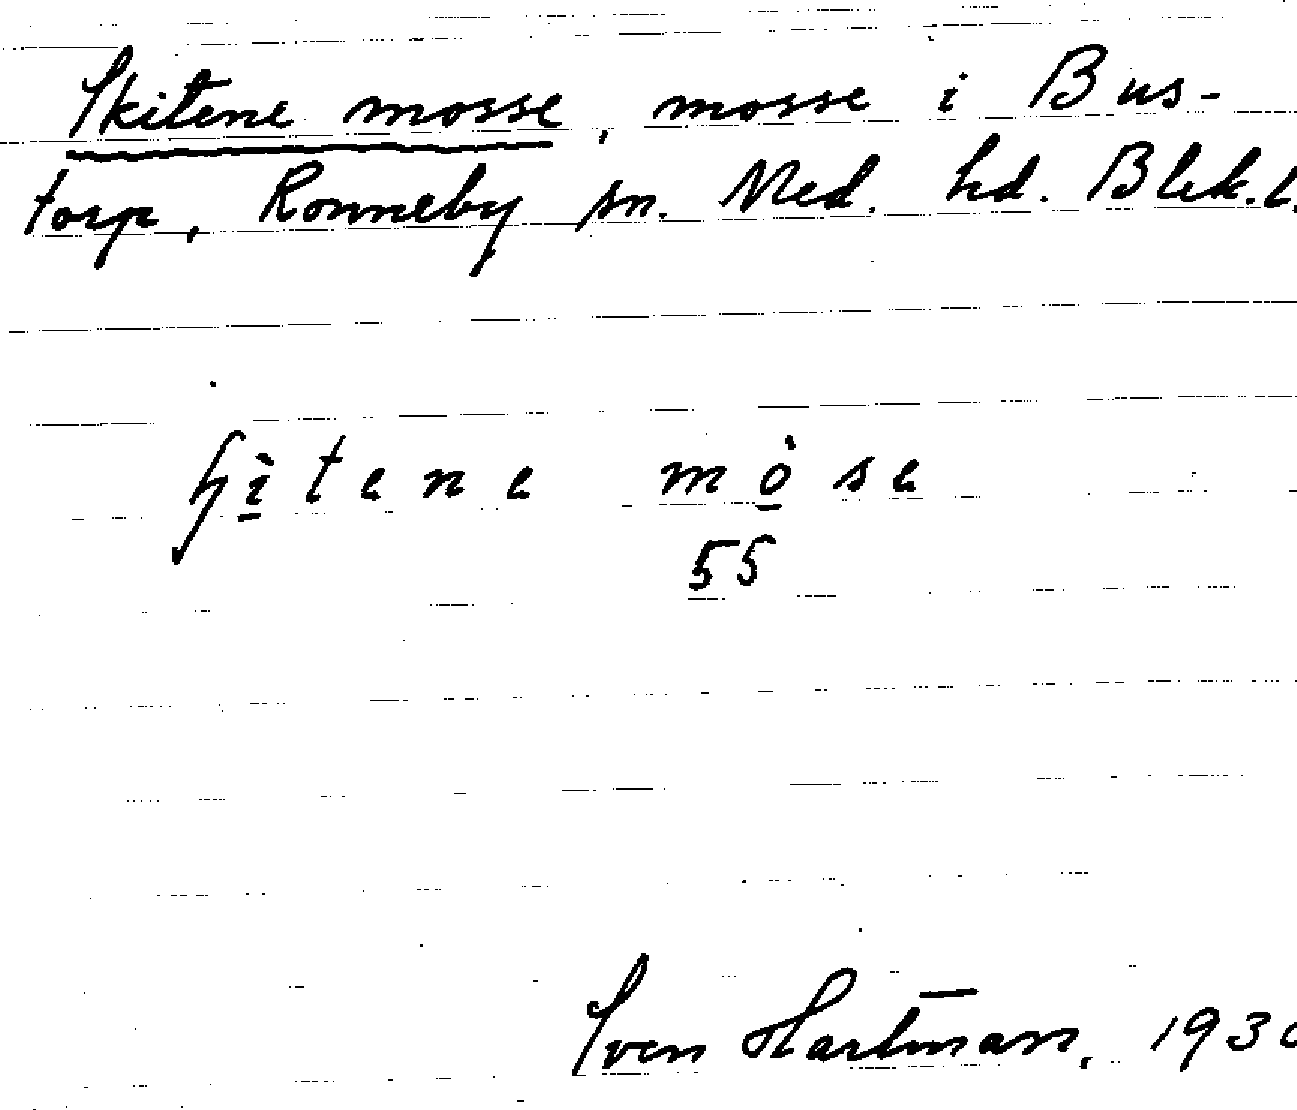 Skitene mosse, mosse i Bus-
torp, Ronneby sn. Med. hd. Blek. l.
ʃì̱tene mò̱se
55
Sven Hartman̄, 1930